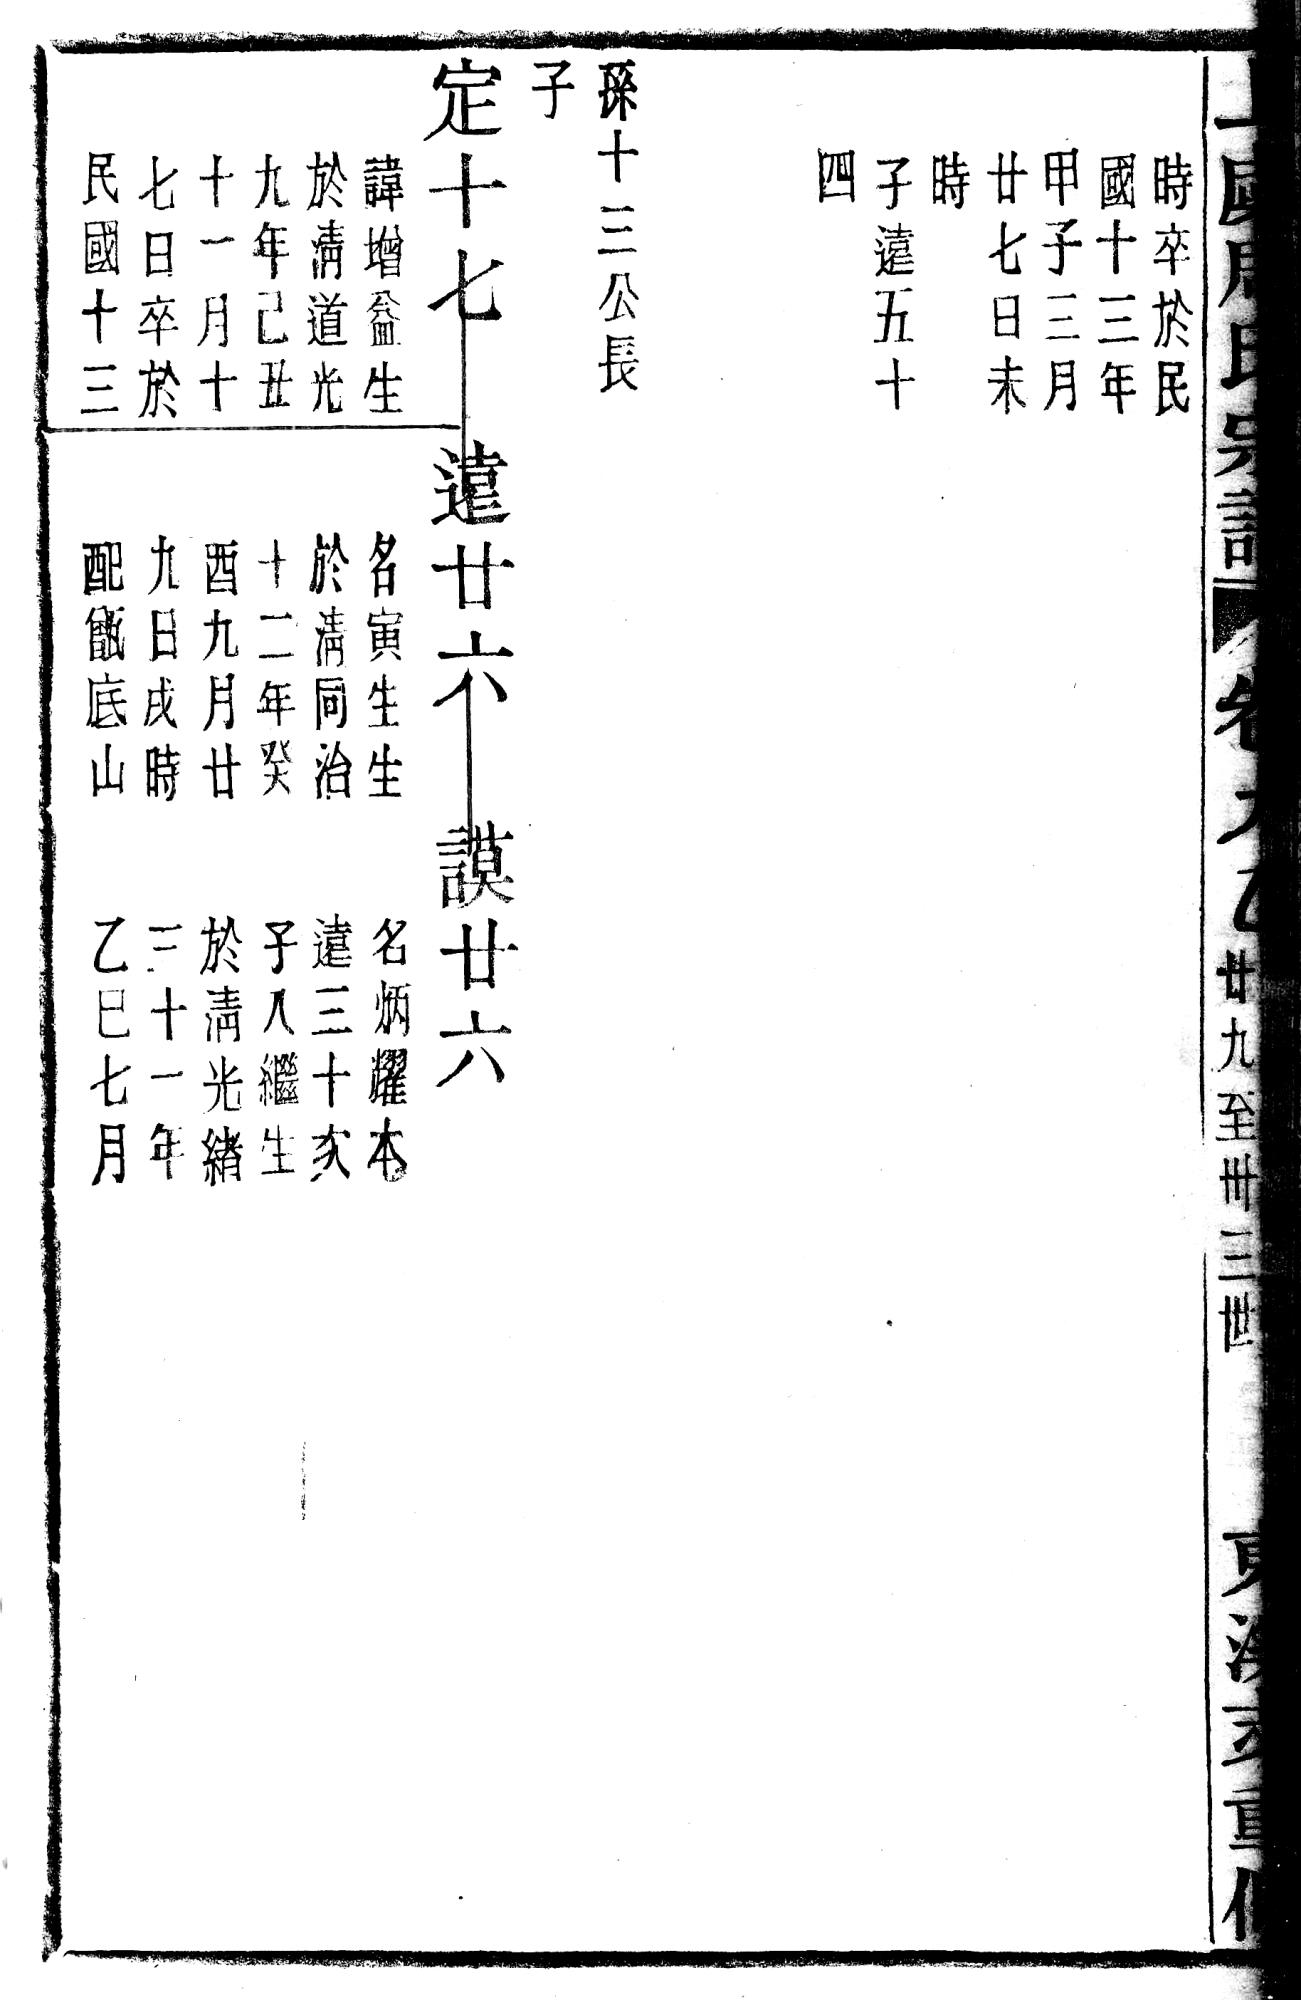 周氏宗譜
卷九乙
廿九至卅三世
重修
時卒於民
國十三年
甲子三月
廿七日未
時
子遠五十
四
孫十三公長
子
定十七
諱增益生
於清道光
九年己丑
十一月十
七日卒於
民國十三
遠廿六
名寅生生
於清同治
十二年癸
酉九月廿
九日戌時
配甑底山
謨廿六
名炳耀本
遠三十亥
子入繼生
於清光緒
三十一年
乙巳七月